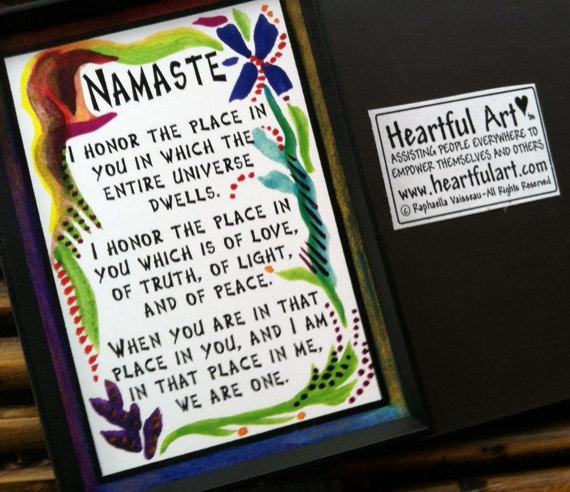 NAMASTE
I HONOR THE PLACE IN
YOU IN WHICH THE
ENTIRE UNIVERSE
DWELLS.
I HONOR THE PLACE IN
YOU WHICH IS OF LOVE,
OF TRUTH, OF LIGHT,
AND OF PEACE.
WHEN YOU ARE IN THAT
PLACE IN YOU, AND I AM
IN THAT PLACE IN ME,
WE ARE ONE.
Heartful Art
ASSISTING PEOPLE EVERYWHERE TO
EMPOWER THEMSELVES AND OTHERS
www.heartfulart.com
© Raphaella Vaisseau-All Rights Reserved